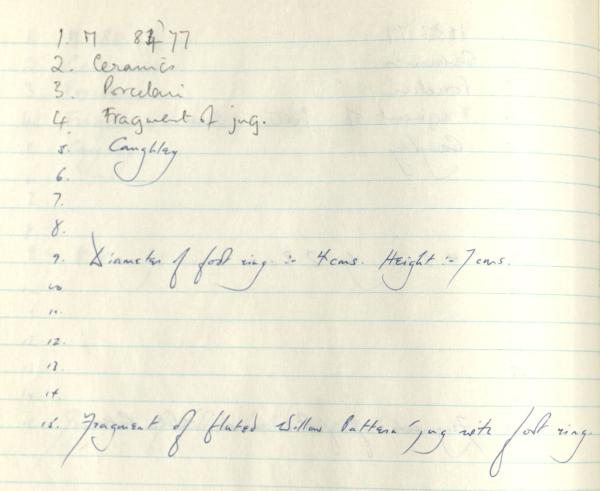 1. M 84'77
2. Ceramics
3. Porcelain
4. Fragment of jug.
5. Caughley
6.
7.
8.
9. Diameter of foot ring :- 4 cms. Height :- 7 cms.
10
11.
12.
13.
14.
15. Fragment of fluted Willow Pattern jug with foot ring.